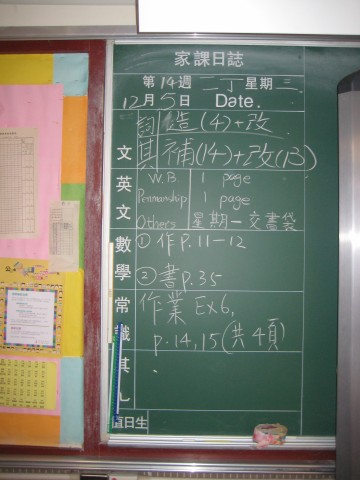 家課日誌
第14週 二丁 星期三
12月5日 Date.
文 詞 造(4)+改
其 補(14)+改(13)
英文 W.B 1 page
Penmanship 1 page
Others 星期一交書袋
數學 ① 作P.11-12
② 書p.35
常識 作業 Ex6,
p.14,15(共4頁)
其
值日生